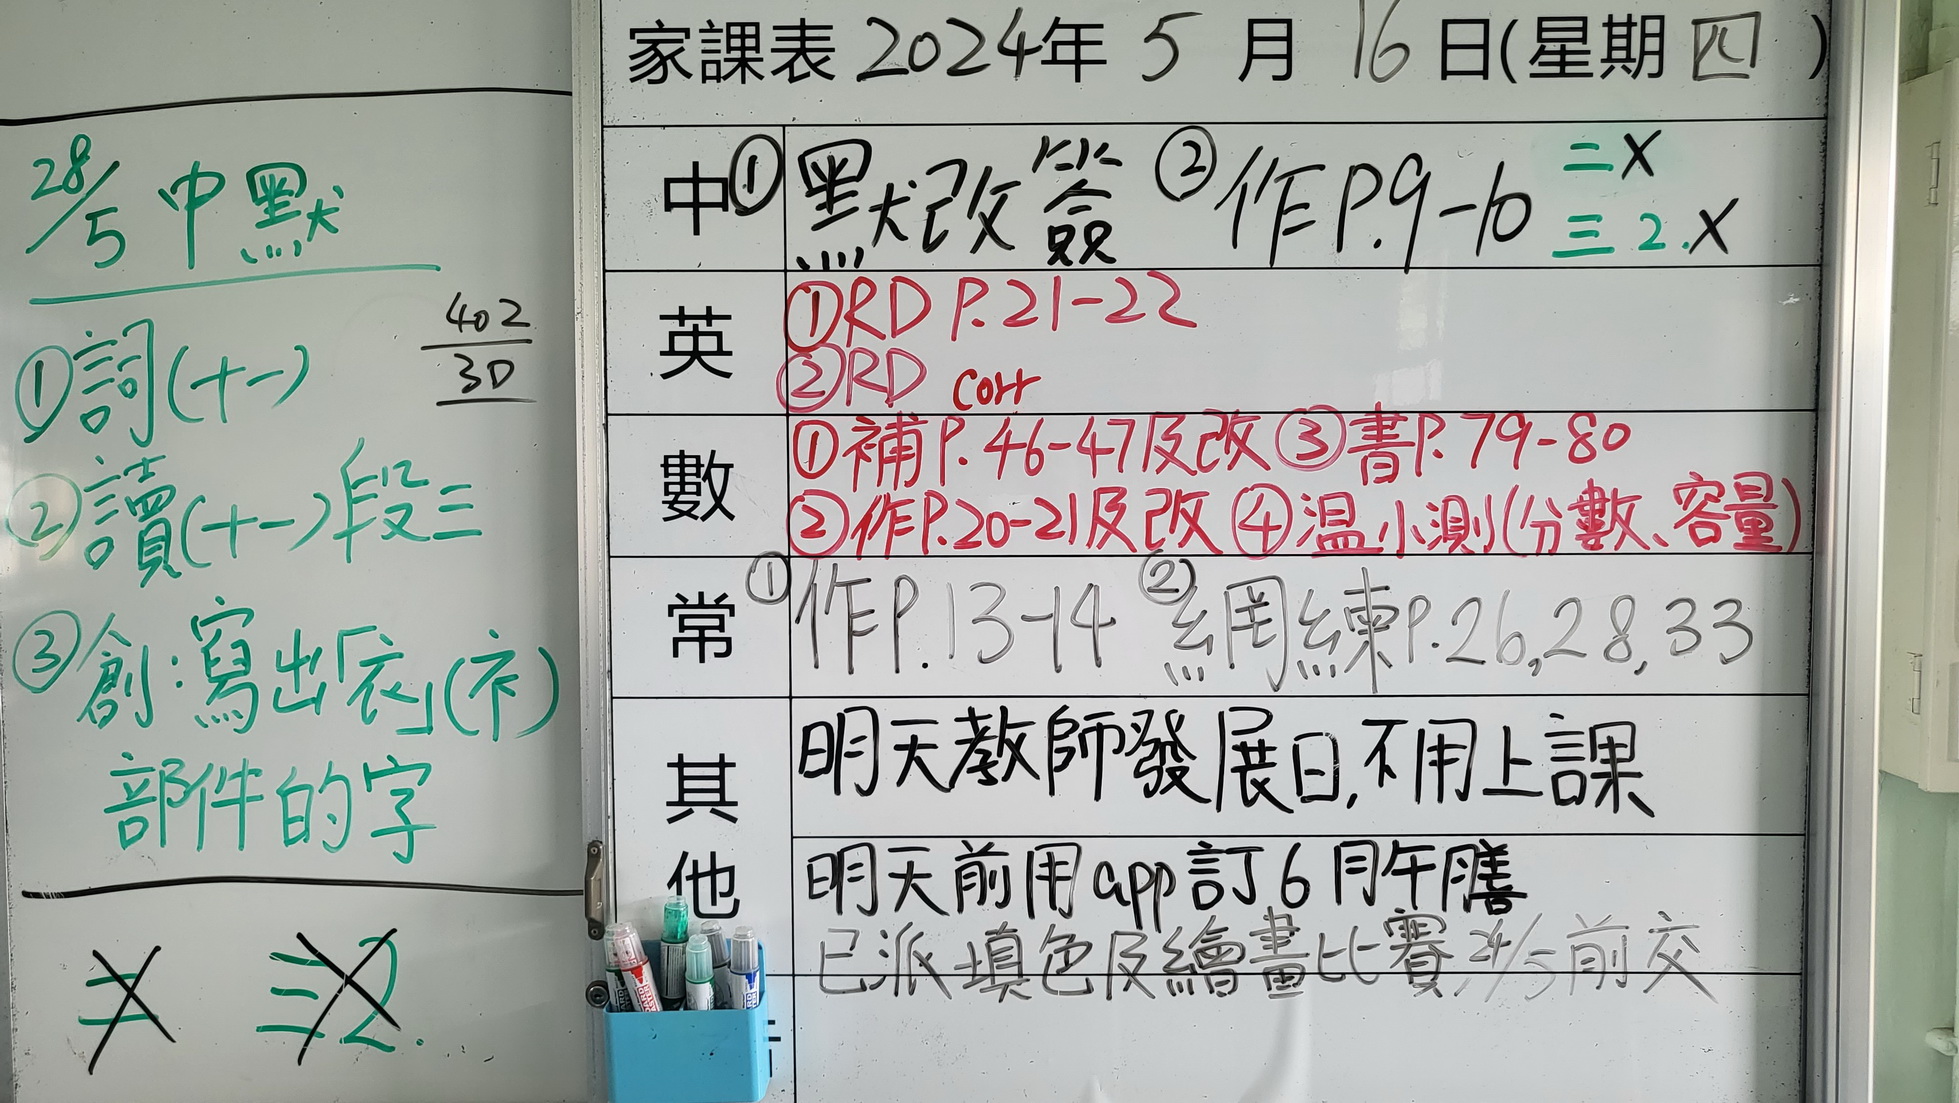 28/5 中默
①詞(十一)
402
30
②讀(十一)段三
③創:寫出「衣」(衤)
部件的字
二
三2.
家課表 2024年 5 月 16 日(星期 四 )
中 ①默改簽 ②作P.9-10 二X
三 2.X
英 ①RD P.21-22
②RD corr
數 ①補P.46-47及改 ③書P.79-80
②作P.20-21及改 ④温小測(分數、容量)
常 ①作P.13-14 ②網練P.26,28,33
其他
明天教師發展日,不用上課
明天前用app訂6月午膳
已派填色及繪畫比賽,24/5前交